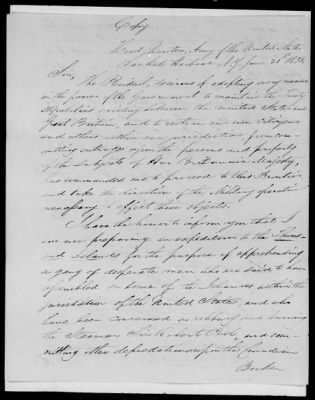 Copy
Head Quarters, Army of the United States
Sackets Harbour, N.Y. June 20th 1838.
Sir,
The President, desirous of adopting every measure
in the power of the Government to maintain the Treaty
Stipulations existing between the United States and
Great Britain, and to restrain our own Citizens
and others within our jurisdiction from com-
mitting outrages upon the persons and property
of the Subjects of Her Britannic Majesty,
has commanded me to proceed to this Frontier
and take the direction of the Military operations
necessary to effect those objects.
I have the honor to inform you that I
am now preparing an expedition to the Thous-
and Islands for the purpose of apprehending
a gang of desperate men who are said to have
assembled on some of the Islands within the
jurisdiction of the United States, and who
have been concerned in robbing and burning
the Steamer Sir Robert Peel, and com-
mitting other depredations upon the Canadian
Border